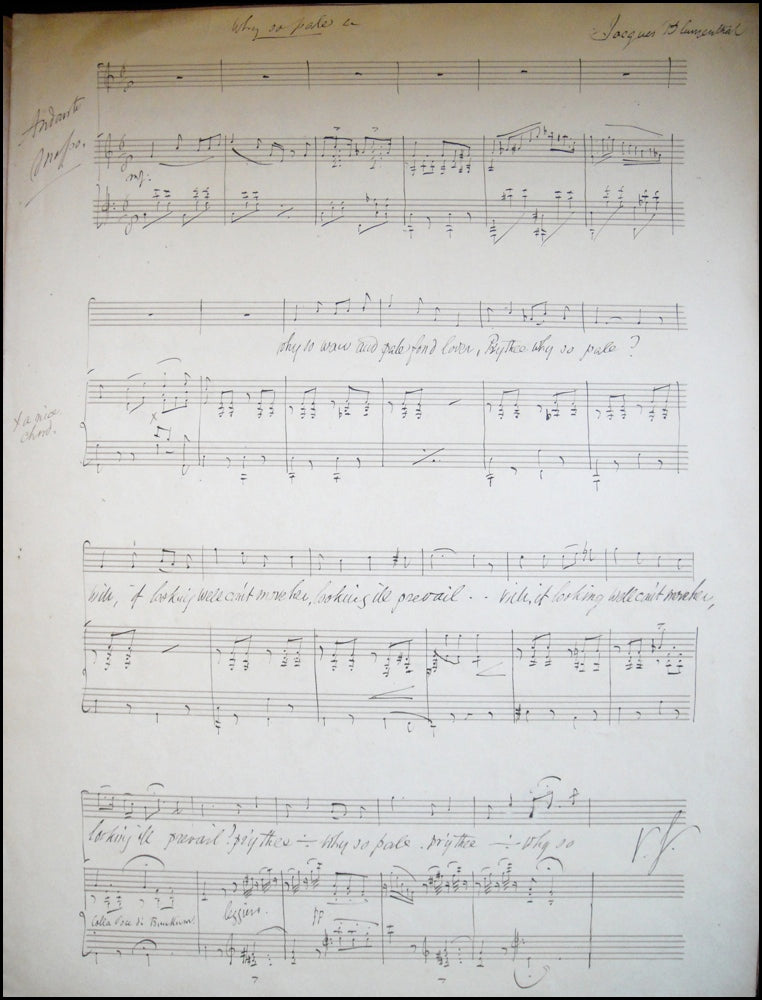 Why so pale
Jacques Blumenthal
Andante
mf.
why so wan and pale fond lover, Prythee why so pale?
x a nice
chord.
x
will, if looking well can't move her, looking ill prevail . . will, if looking well can't move her,
looking ill prevail? prythee ÷ why so pale. prythee ÷ why so
V. S.
Colla Voce di
leggiero.
pp